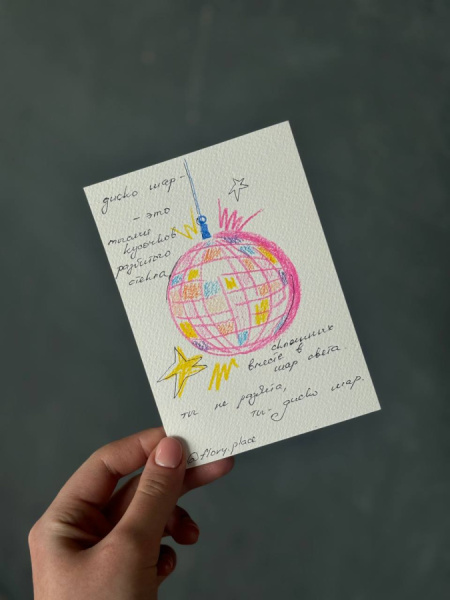 диско шар -
- это
тысячи
кусочков
разбитого
стекла,
склеенных
вместе в
шар света.
ты не разбита,
ты - диско шар.
@flovy.place